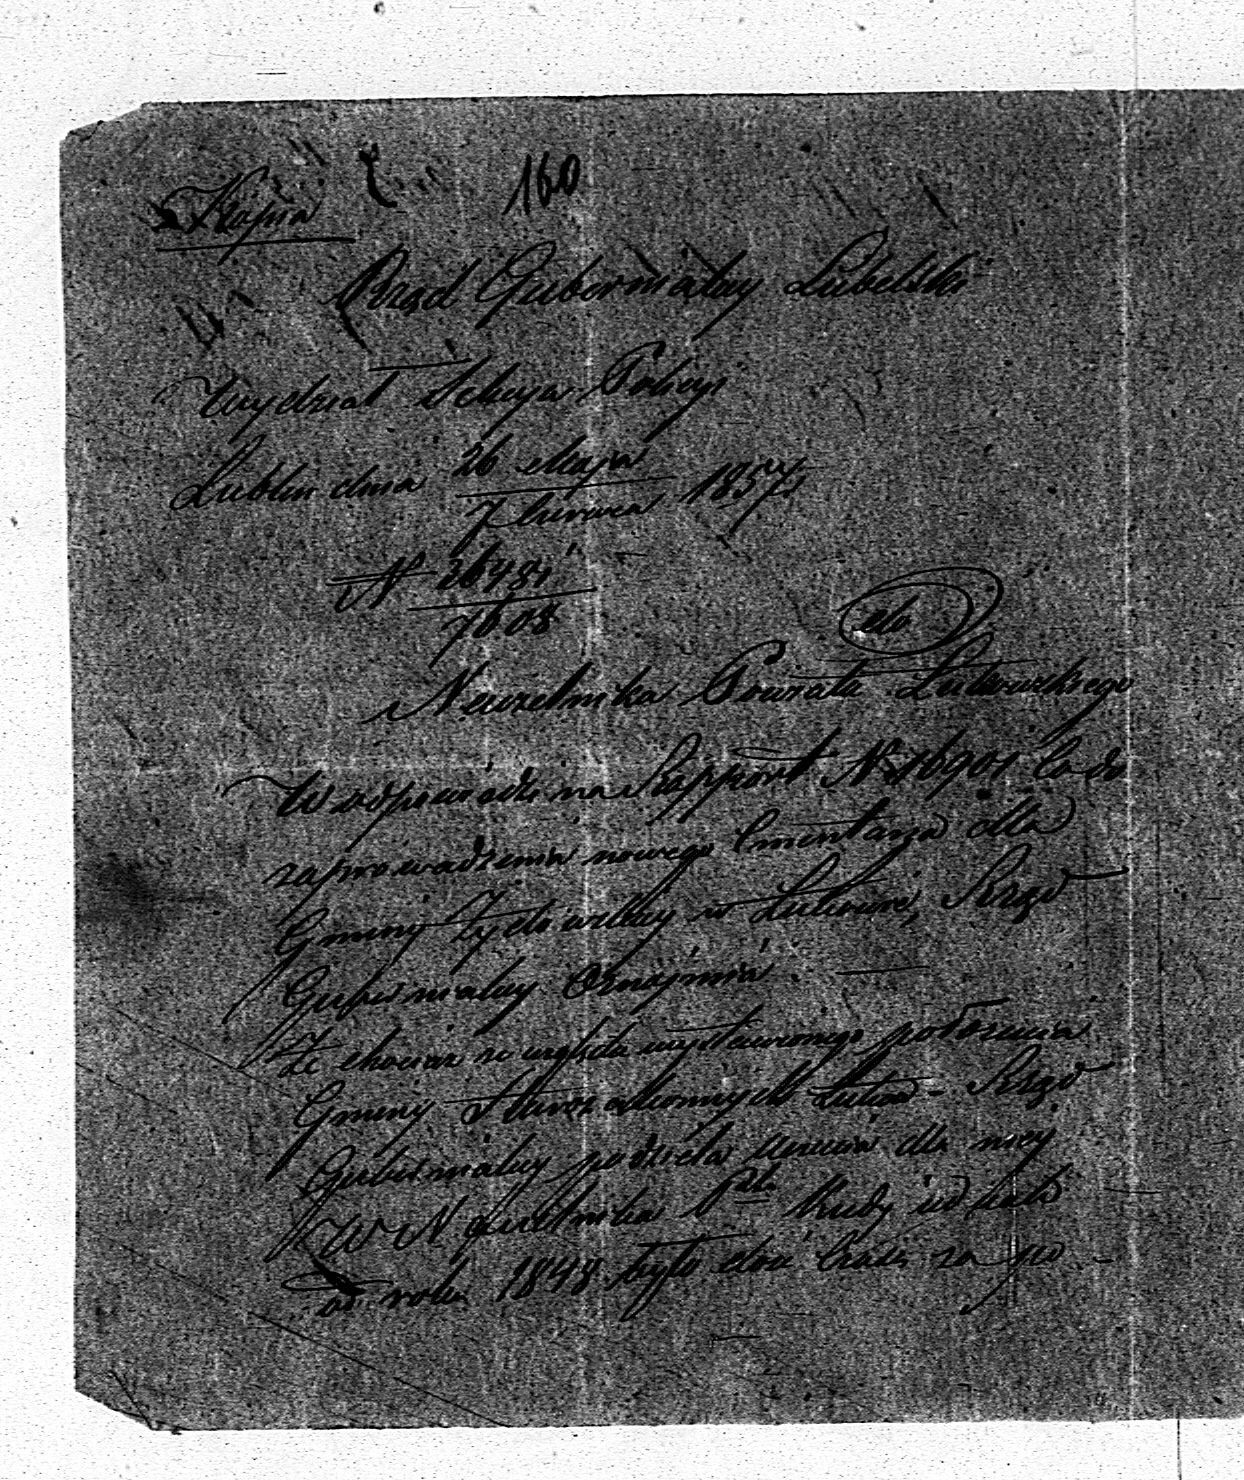 Kopia
160
Rząd Gubernialny Lubelski
Wydział Sekcya Policyi
Lublin dnia 26 Maja / 7 Czerwca 1857 r
N 26481 / 7608
do
Naczelnika Powiatu Łukowskiego
W odpowiedzi na Rapport N 16901 co do
zaprowadzenia nowego Cmentarza dla
Gminy Żydowskiey w Łukowie, Rząd
Gubernialny Oznajmia
Że chociaż ze względu wystawionego położenia
Gminy Starozakonnych Łuków - Rząd
Gubernialny
W Naczelnika Ptu kiedy
od roku 1848 było dość czasu za